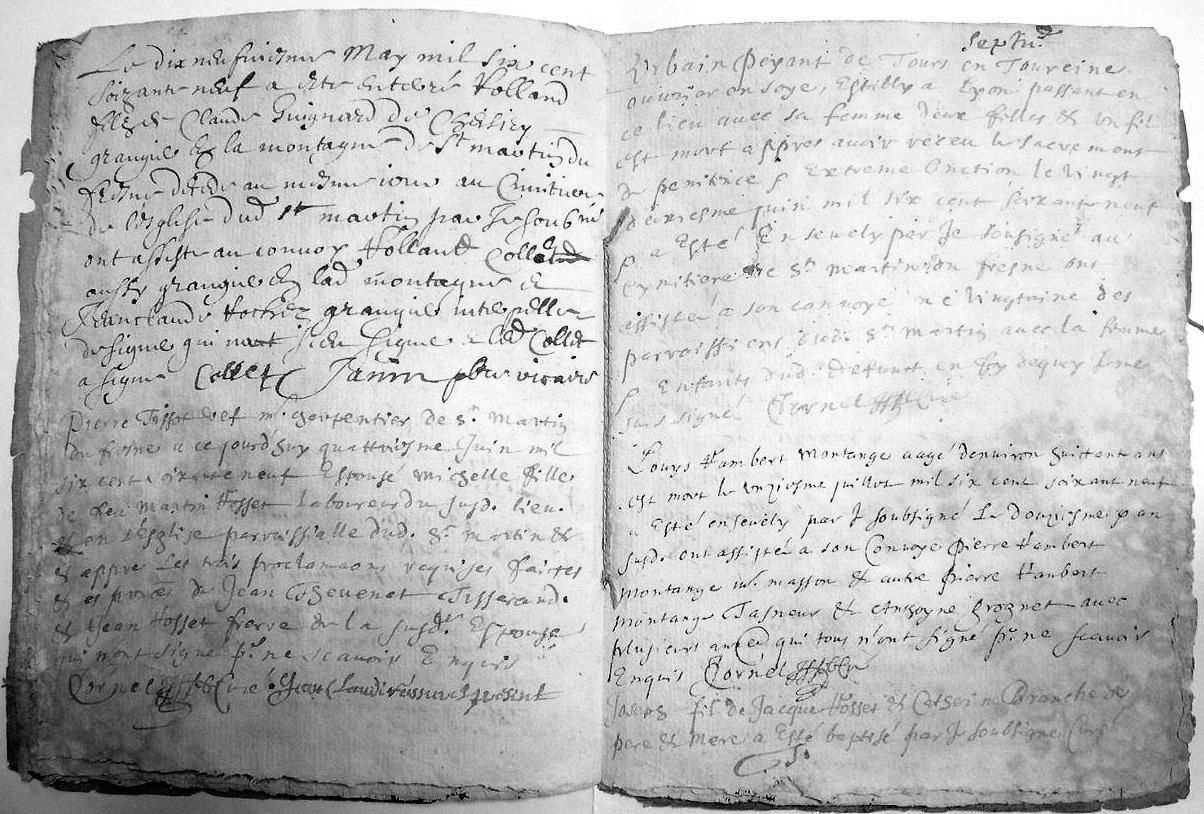 Le dixneufuiesme May mil six cent
soixante neuf a este enterré Rolland
filz de Claude Guignard de
grangier En la montagne de St martin du
fresne decede au mesme iour au Cimitiere
de l'esglise dud. St martin par Je soubné
ont assiste au convoy Rolland Collet
aussy grangier En lad montagne &
Jean claude grangier interpelle
de signer qui n'ont sceu signer & led Collet
a signe Collet Janin pbre vicaire
Pierre Tissot m.e charpentier de St martin
du fresne a ce jourd'huy quattriesme Juin mil
six cent soixante neuf Espousé michelle fille
de feu Martin Hosset Laboureur du susd. lieu.
en l'Esglise parroissialle dud. St martin &
& appres Les trois proclamaons requises faictes
& es pnces de Jean Chevenet Tisserand.
& Jean Hosset frerre de la susd. Espouse
qui n'ont signe pr. ne scavoir Enquis
Cornel Curé present
septu.e
Urbain Peyant de Tours en Toureine
ouvrier en soye, Estably a Lyon passant en
ce lieu avec sa femme deux filles & un fil
est mort appres avoir receu le sacrement
de penitence & Extreme Onction le vingt
deuxiesme juin mil six cent soixante neuf
& a Esté Ensevely par Je soussigné au
cymitiere de St Martin du fresne ont
assisté a son convoye une vingtaine des
parroissiens dud. St martin avec la femme
& Enfants dud. defunct en foy dequoy Je me
suis signé Cornel Curé
Louys Hambert Montange aagé d'environ huictent ans
est mort le unziesme juillet mil six cent soixant neuf
a Esté ensevely par Je soubsigné Le Douziesme & an
susd. ont assisté a son Convoye Pierre Hambert
Montange me. masson & autre Pierre Hambert
montange Tasneur & Anthoyne Grognet avec
plusieurs autres qui tous n'ont signé pr. ne scavoir
Enquis Cornel
Joseph fil de Jacque Hosset & Catherine Branche ses
pere & mere a Esté baptisé par Je soubsigne Curé